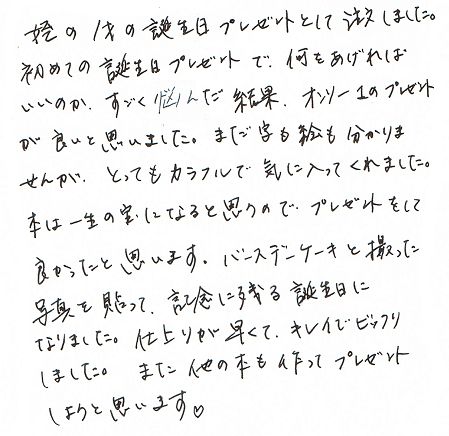 姪の1才の誕生日プレゼントとして注文しました。
初めての誕生日プレゼントで、何をあげれば
いいのか、すごく悩んだ結果、オンリー1のプレゼント
が良いと思いました。まだ字も絵も分かりま
せんが、とってもカラフルで気に入ってくれました。
本は一生の宝になると思うので、プレゼントをして
良かったと思います。バースデーケーキと撮った
写真を貼って、記念に残る誕生日に
なりました。仕上りが早くて、キレイでビックリ
しました。また他の本も作ってプレゼント
しようと思います♡